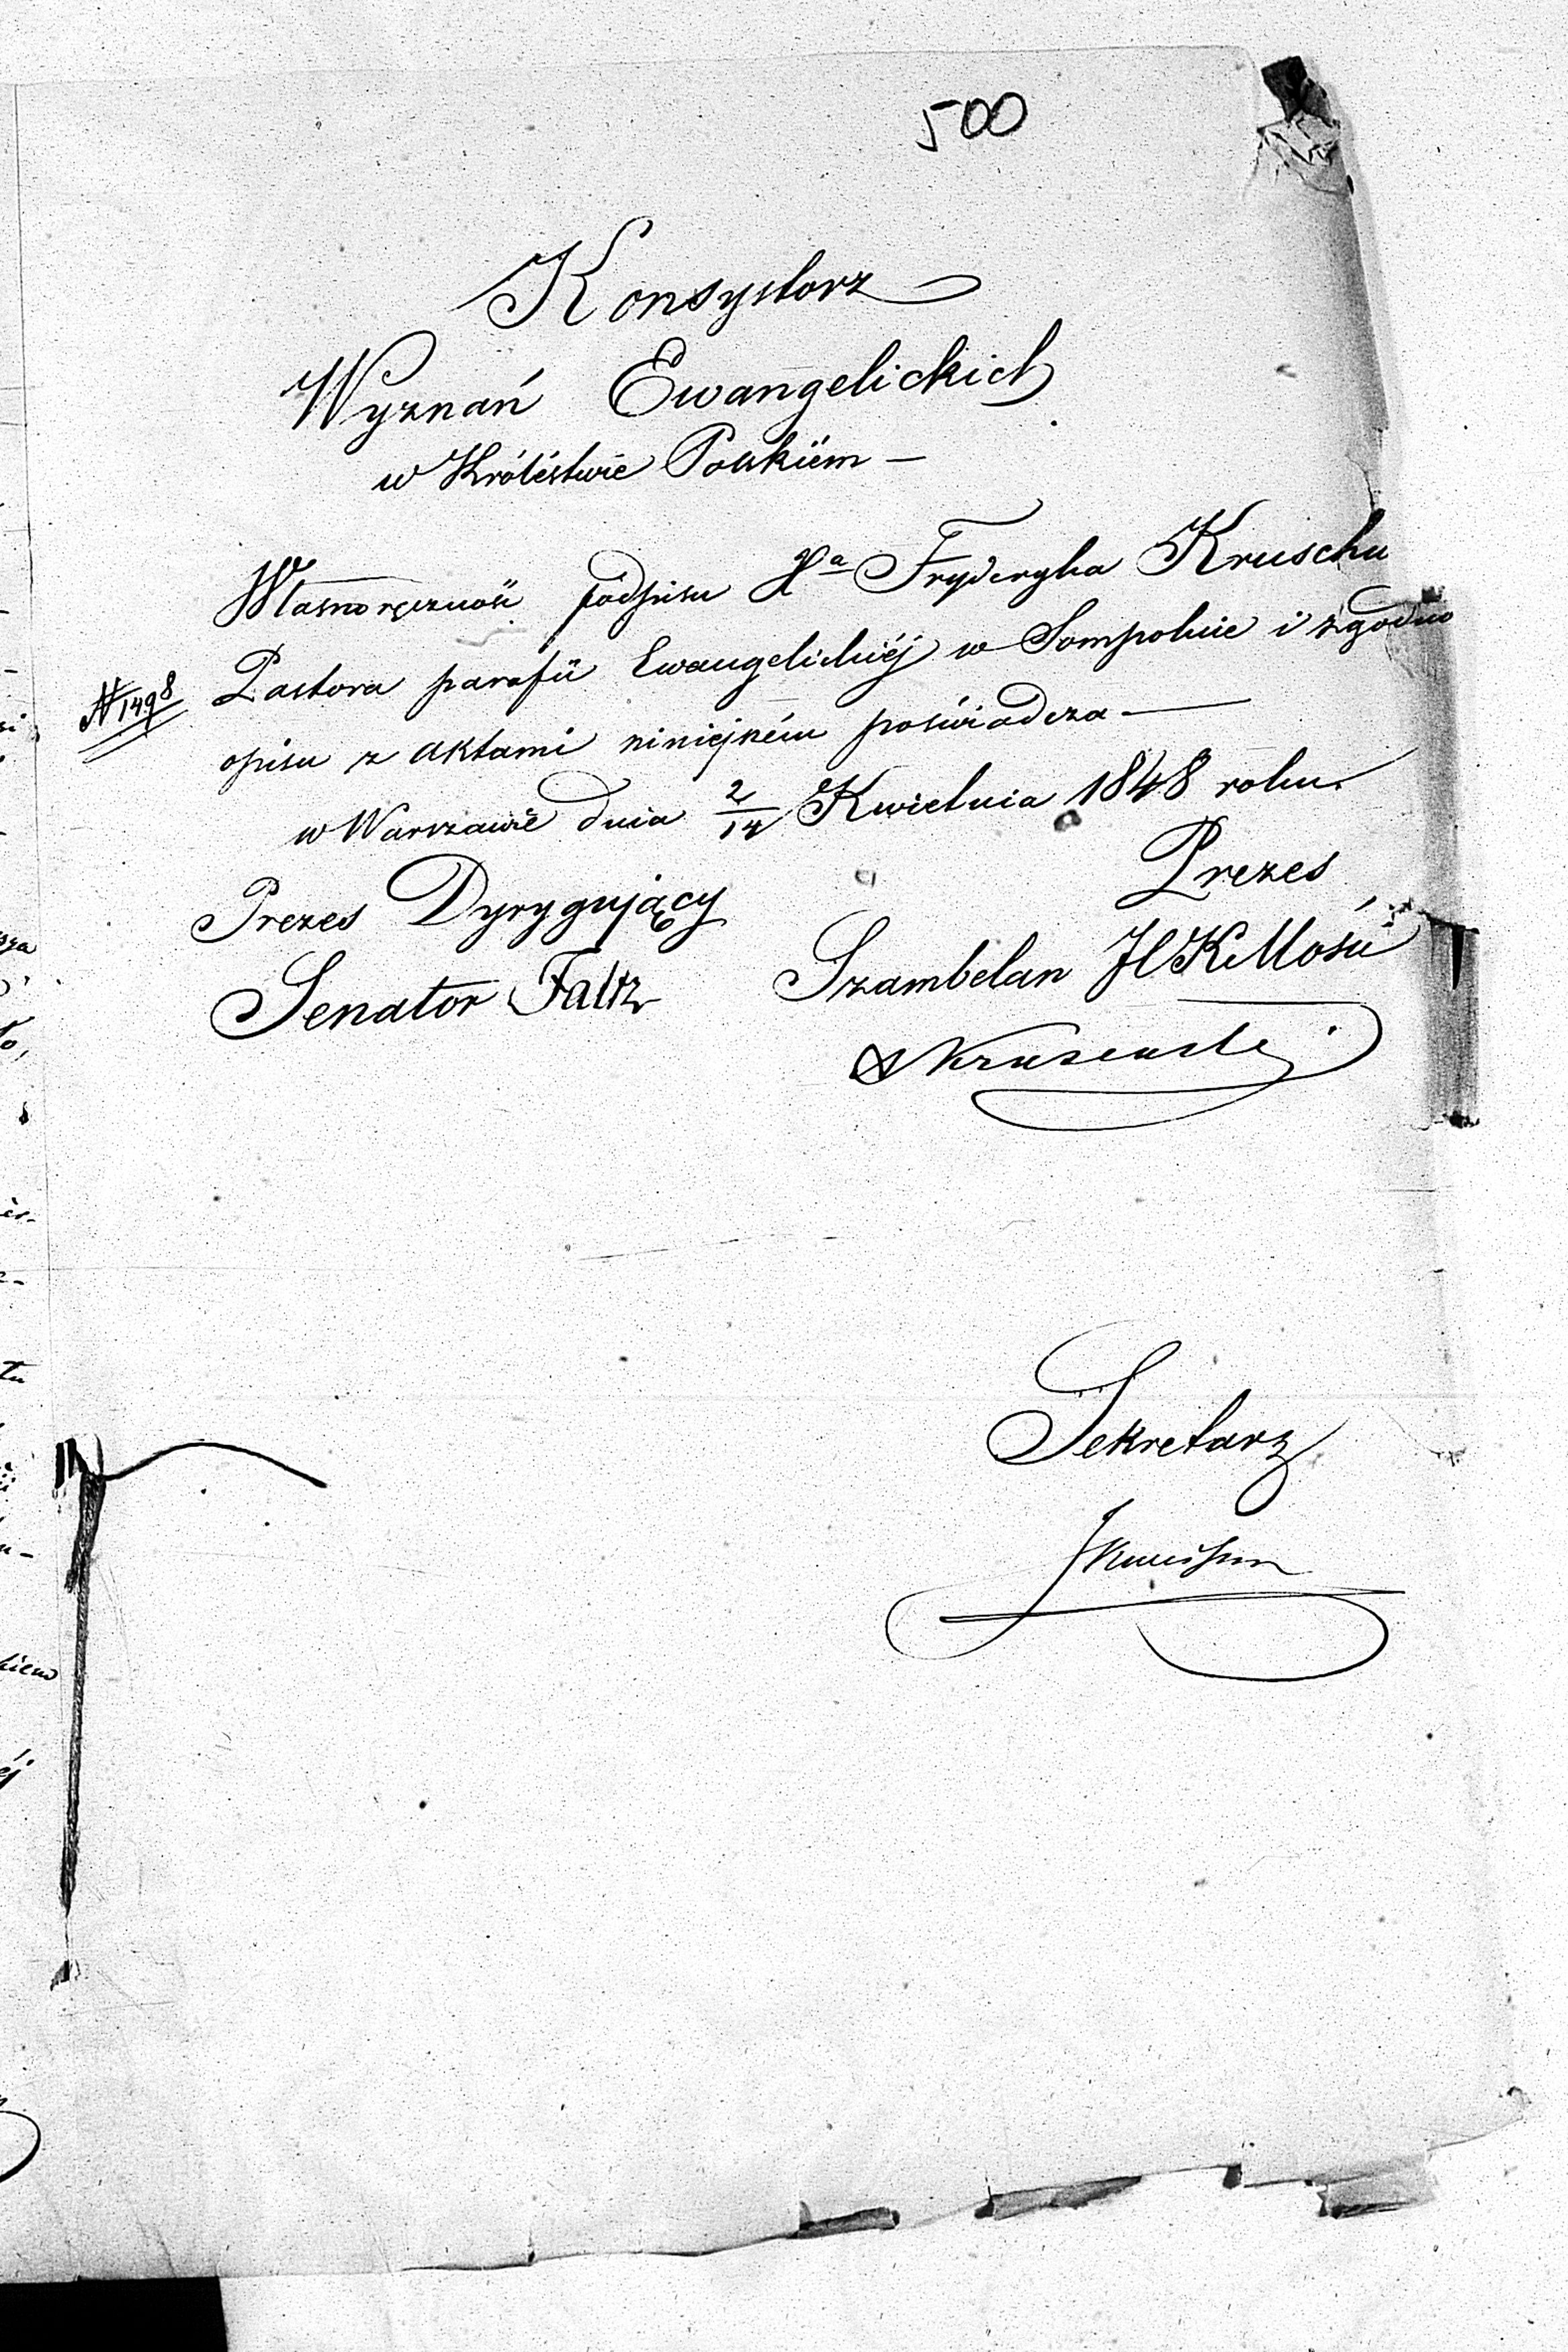 500
Konsystorz
Wyznań Ewangelickich
w Królestwie Polskiém —
Własnoręczność podpisu Xa Fryderyka Kruscha
Pastora parafii Ewangelickiéj w Sompolnie i zgodno
N 1498
opisu z aktami niniejszém poświadcza —
w Warszawie dnia 2/14 Kwietnia 1848 roku.
Prezes Dyrygujący
Prezes
Senator Faltz
Szambelan JKMości
Sekretarz